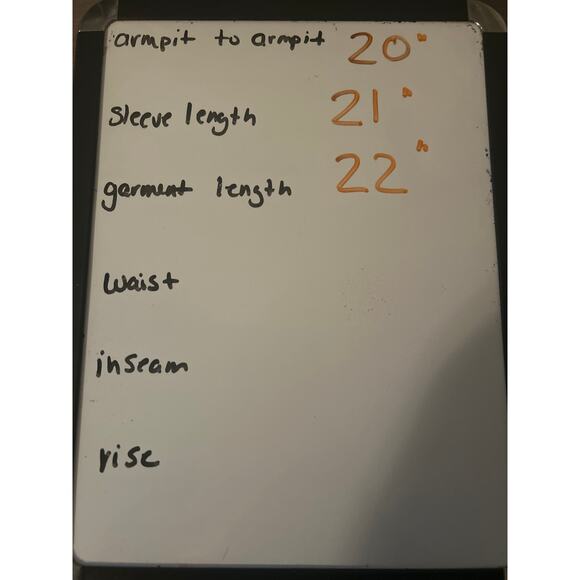 armpit to armpit 20"
sleeve length 21"
garment length 22"
waist
inseam
rise